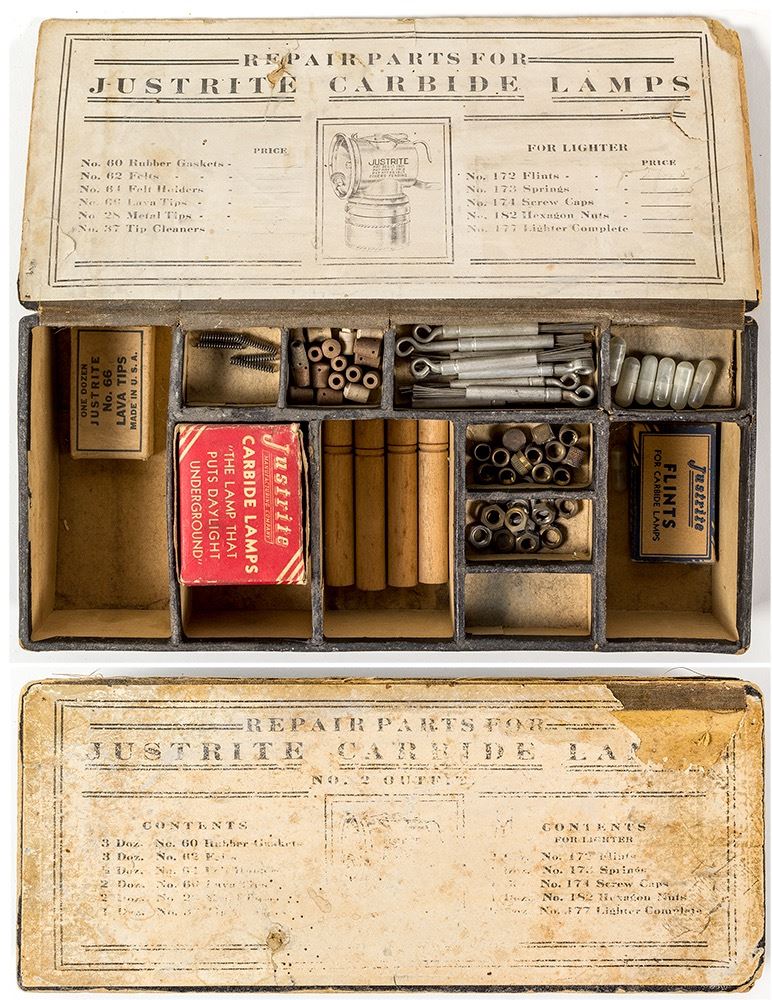 REPAIR PARTS FOR
JUSTRITE CARBIDE LAMPS
PRICE
No. 60 Rubber Gaskets -
No. 62 Felts - -
No. 64 Felt Holders
No. 66 Lava Tips - -
No. 28 Metal Tips - -
No. 37 Tip Cleaners
JUSTRITE
FOR LIGHTER
PRICE
No. 172 Flints - -
No. 173 Springs - -
No. 174 Screw Caps -
No. 182 Hexagon Nuts -
No. 177 Lighter Complete
ONE DOZEN
JUSTRITE
No. 66
LAVA TIPS
MADE IN U.S.A.
Justrite
MANUFACTURING COMPANY
CARBIDE LAMPS
"THE LAMP THAT
PUTS DAYLIGHT
UNDERGROUND"
Justrite
FLINTS
FOR CARBIDE LAMPS
REPAIR PARTS FOR
JUSTRITE CARBIDE LA
NO. 2 OUTFIT
CONTENTS
3 Doz. No. 60 Rubber Gaskets
3 Doz. No. 62 Felts
Doz. No. 64
2 Doz. No. 66 Lava Tips
Doz. No.
Doz. No.
CONTENTS
FOR LIGHTER
No. 172 Flints
No. 173 Springs
No. 174 Screw Caps
No. 182 Hexagon Nuts
No. 177 Lighter Complete